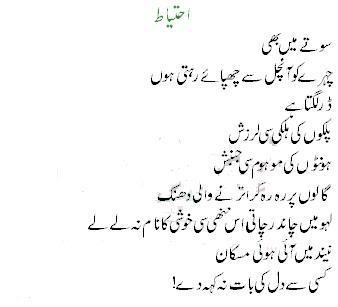 احتیاط
سوتے میں بھی
چہرے کو آنچل سے چھپائے رہتی ہوں
ڈر لگتا ہے
پلکوں کی ہلکی سی لرزش
ہونٹوں کی موہوم سی جنبش
گالوں پر رہ رہ کر اترنے والی دھنک
لہو میں چاند رچاتی اس ننھی سی خوشی کا نام نہ لے لے
نیند میں آئی ہوئی مسکان
کسی سے دل کی بات نہ کہہ دے!